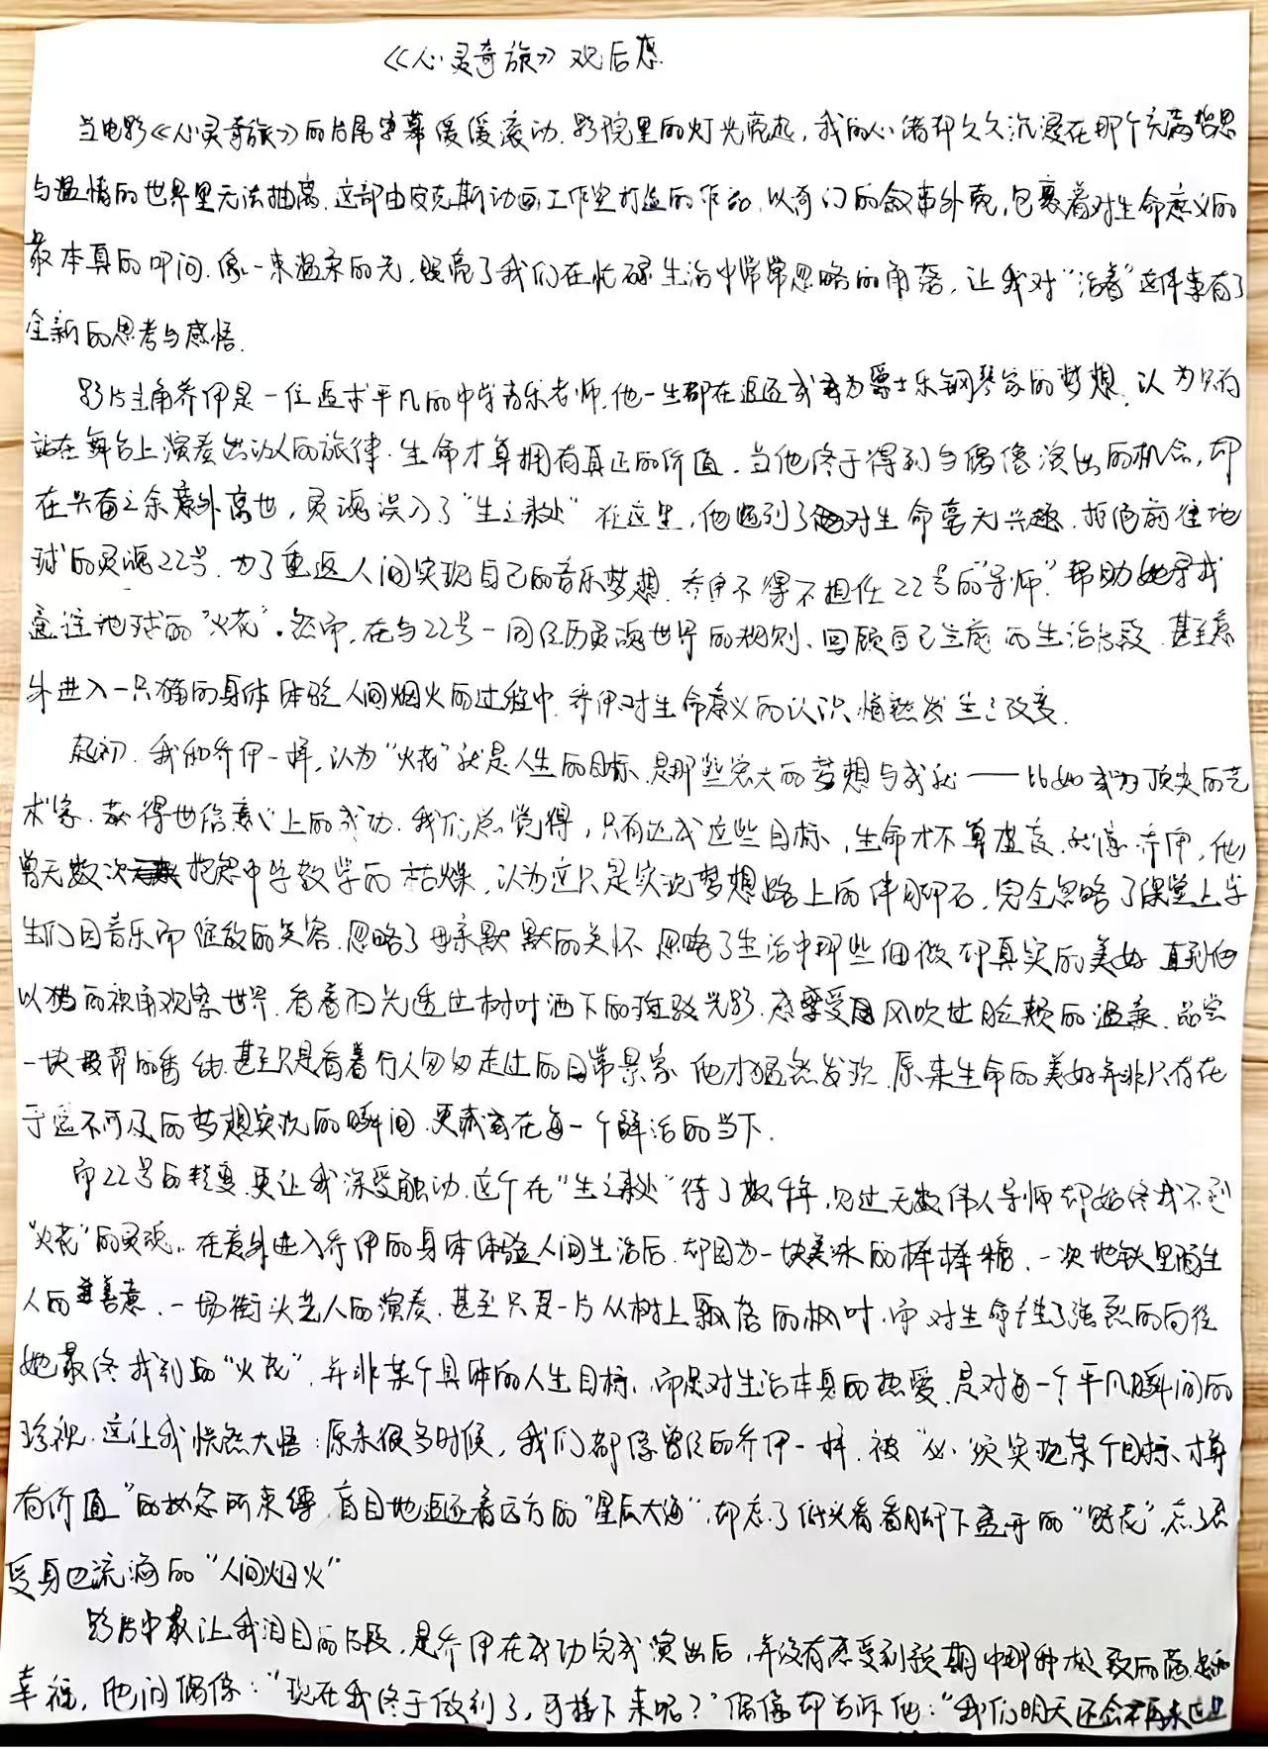 《心灵奇旅》观后感
当电影《心灵奇旅》的片尾字幕缓缓滚动,影院里的灯光亮起,我的心绪却久久沉浸在那个充满哲思
与温情的世界里无法抽离.这部由皮克斯动画工作室打造的作品,以奇幻的叙事外壳,包裹着对生命意义的
最本真的叩问.像一束温柔的光,照亮了我们在忙碌生活中常常忽略的角落,让我对“活着”这件事有了
全新的思考与感悟.
影片主角乔伊是一位追求平凡的中学音乐老师.他一生都在追逐成为爵士乐钢琴家的梦想,认为只有
站在舞台上演奏出动人的旋律,生命才算拥有真正的价值.当他终于得到与偶像演出的机会,却
在兴奋之余意外离世,灵魂误入了“生之来处”在这里,他遇到了对生命毫无兴趣,拒绝前往地
球的灵魂22号.为了重返人间实现自己的音乐梦想,乔伊不得不担任22号的“导师”帮助她寻找
通往地球的“火花”.然而,在与22号一同经历灵魂世界的规则、回顾自己生底的生活片段,甚至意
外进入一只猫的身体体验人间烟火的过程中,乔伊对生命意义的认识悄然发生了改变.
起初,我和乔伊一样,认为“火花”就是人生的目标,是那些宏大的梦想与成就——比如成为顶尖的艺
术家,获得世俗意义上的成功.我们总觉得,只有达成这些目标,生命才不算虚度.就像乔伊,他
曾无数次抱怨中学教学的枯燥,认为这只是实现梦想路上的绊脚石,完全忽略了课堂上学
生们因音乐而绽放的笑容,忽略了母亲默默的关怀,忽略了生活中那些细微却真实的美好.直到他
以猫的视角观察世界,看着阳光透过树叶洒下的斑驳光影,感受风吹过脸颊的温柔,品尝
一块披萨的香气,甚至只是看着行人匆匆走过的日常景象,他才猛然发现,原来生命的美好并非只存在
于遥不可及的梦想实现的瞬间,更藏在每一个鲜活的当下.
而22号的转变,更让我深受触动.这个在“生之来处”待了数千年,见过无数伟人导师却始终找不到
“火花”的灵魂,在意外进入乔伊的身体体验人间生活后,却因为一块美味的棒棒糖、一次地铁里陌生
人的善意、一场街头艺人的演奏,甚至只是一片从树上飘落的枫叶,而对生命产生了强烈的向往
她最终找到的“火花”,并非某个具体的人生目标,而是对生活本身的热爱,是对每一个平凡瞬间的
珍视.这让我恍然大悟:原来很多时候,我们都像曾经的乔伊一样,被“必须实现某个目标,才算
有价值”的执念所束缚,盲目地追逐着远方的“星辰大海”,却忘了低头看看脚下盛开的“野花”,忘了感
受身边流淌的“人间烟火”
影片中最让我泪目的片段,是乔伊在成功完成演出后,并没有感受到预期中那种极致的满足和
幸福,他问偶像:“现在我终于做到了,可接下来呢?”偶像却告诉他:“我们明天还会再来这里